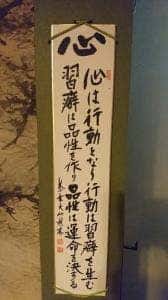 心
心は行動となり行動は習癖を生む
習癖は品性を作り品性は運命を決する